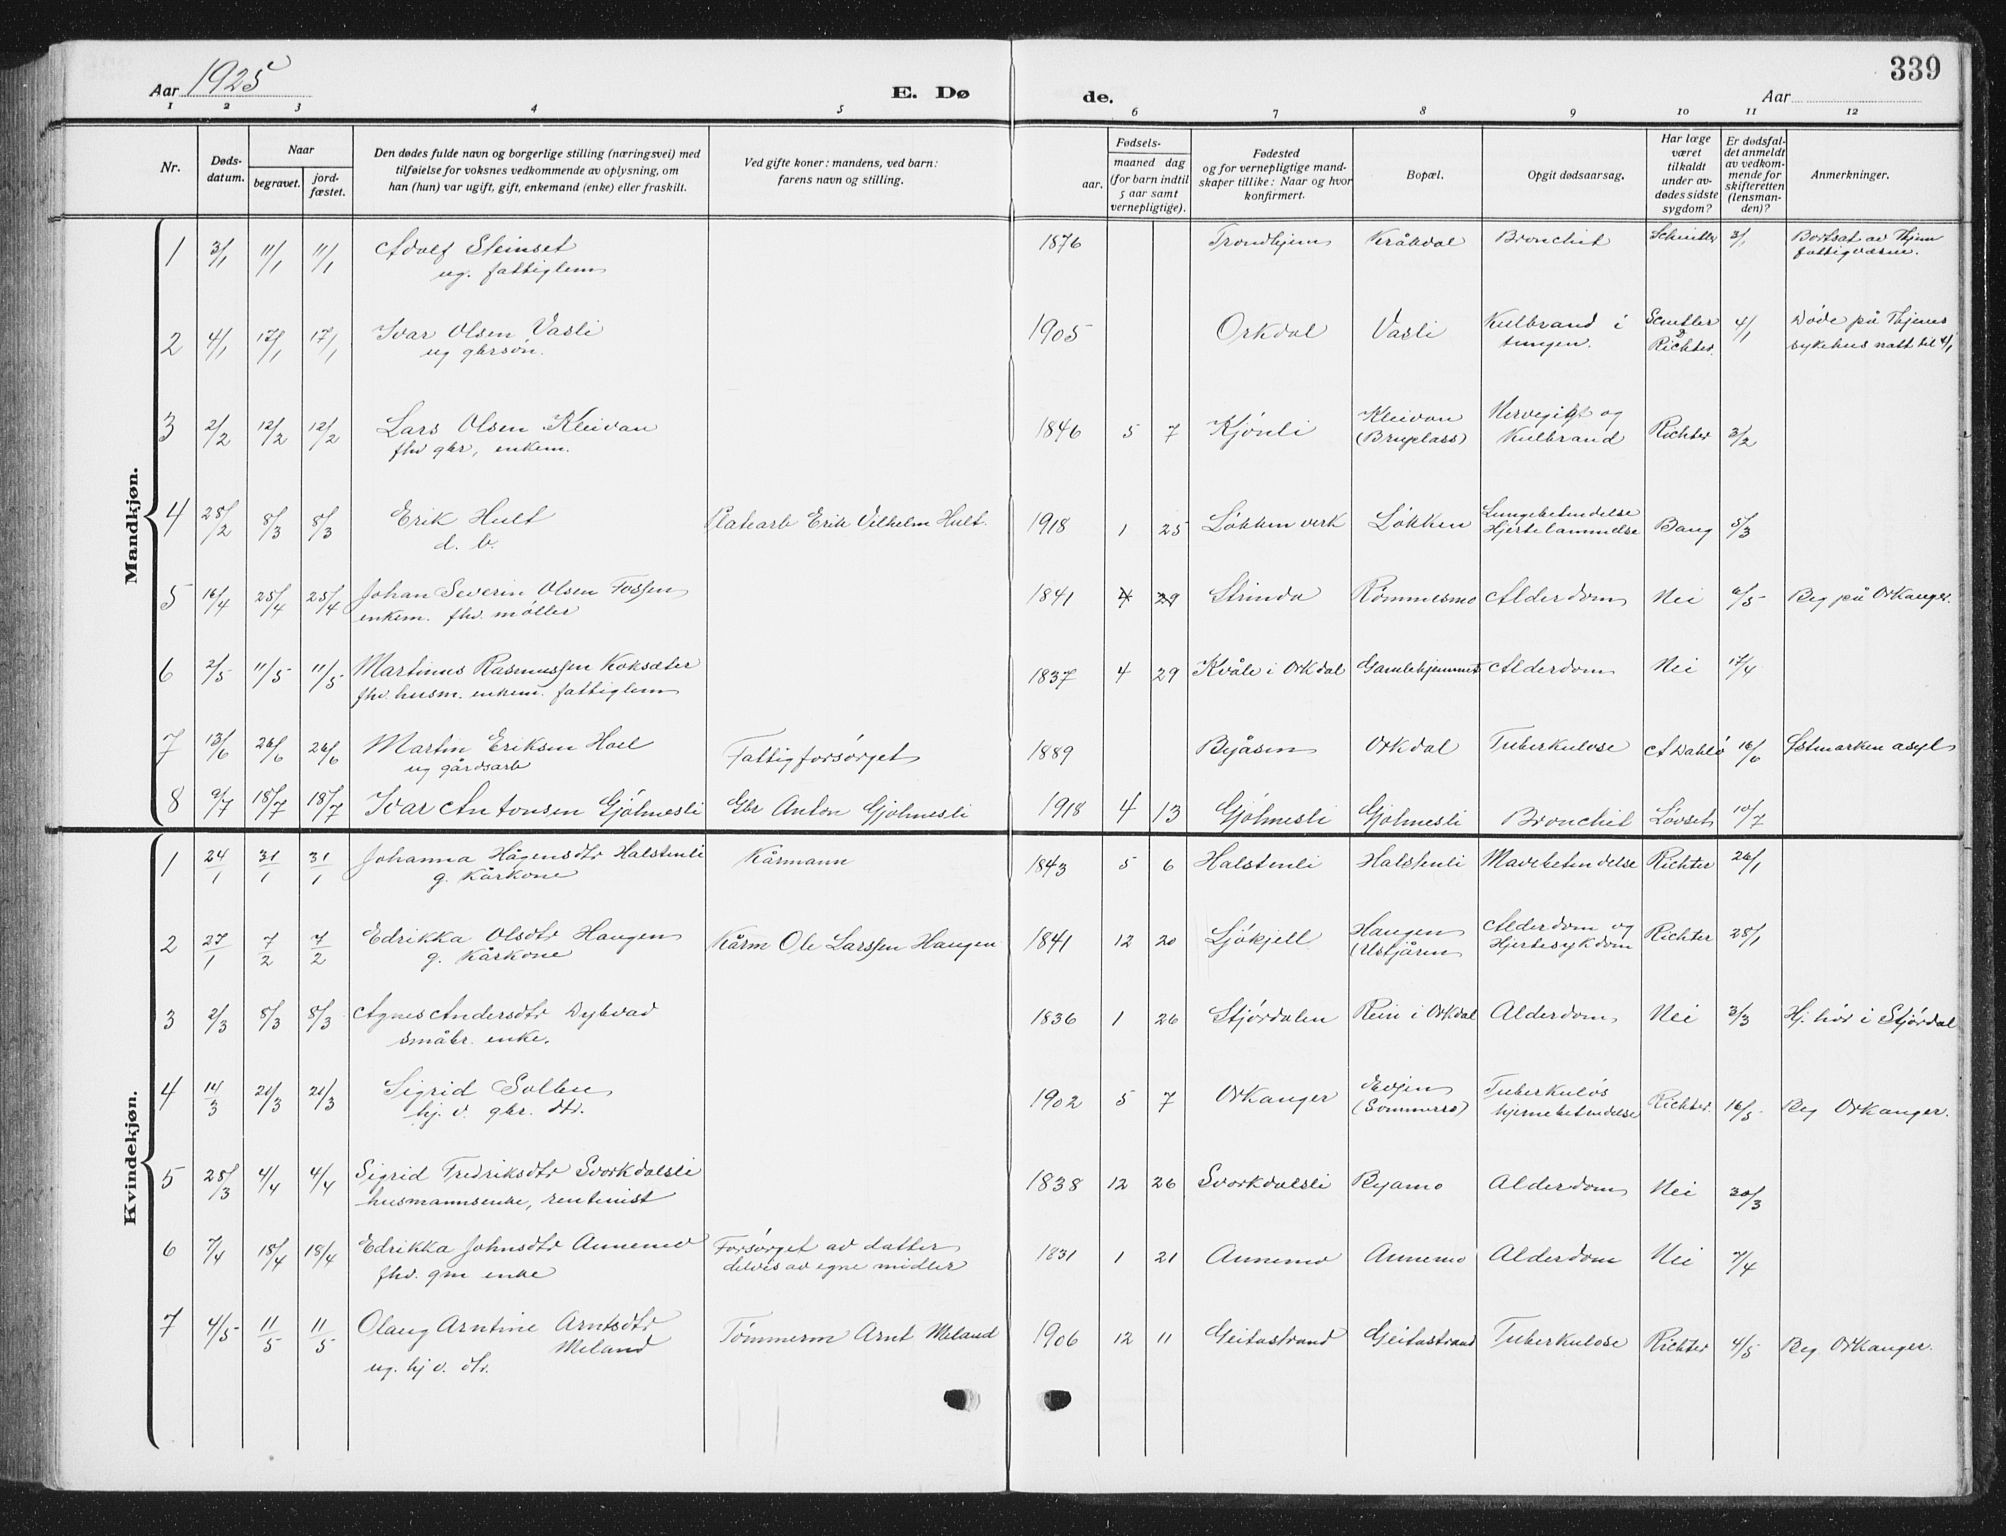 339
Aar 1925
E. Dø
de.
Aar
1 2 3 4 5 6 7 8 9 10 11 12
Nr.
Døds-
datum.
Naar
begravet.
jord-
fæstet.
Den dødes fulde navn og borgerlige stilling (næringsvei) med
tilføielse for voksnes vedkommende av oplysning, om
han (hun) var ugift, gift, enkemand (enke) eller fraskilt.
Ved gifte koner: mandens, ved barn:
farens navn og stilling.
Fødsels-
aar.
maaned dag
(for barn indtil
5 aar samt
vernepligtige).
Fødested
og for vernepligtige mand-
skaper tillike: Naar og hvor
konfirmert.
Bopæl.
Opgit dødsaarsag.
Har læge
været
tilkaldt
under av-
dødes sidste
sygdom?
Er dødsfal-
det anmeldt
av vedkom-
mende for
skifteretten
(lensman-
den)?
Anmerkninger.
Mandkjøn.
1 3/1 11/1 11/1 Adolf Steinset 1876 Trondhjem Kråkdal Bronchit 3/1 Bortsat av Thjem
ug. fattiglem fattigvæsne.
2 4/1 17/1 17/1 Ivar Olsen Vasli 1905 Orkdal Vasli Kulbrand i 4/1 Døde på Thjems
ug gbrsøn. lungen. Richter. sykehus natt til 4/1
3 2/2 12/2 12/2 Lars Olsen Kleivan 1846 5 7 Kjönli Kleivan og Richter 3/2
fhv gbr, enkem. (Bryplass) Kulbrand
4 28/2 8/3 8/3 Erik Hult Platearb Erik Vilhelm Hult. 1918 1 25 Løkken verk Løkken Lungebetendelse Bang 5/3
d. b. Hjertelammelse
5 16/4 25/4 25/4 Johan Severin Olsen Fossen 1841 4 29 Strinda Rømmesmo Alderdom Nei 6/5 Beg på Orkanger.
enkem. fhv. møller
6 2/5 11/5 11/5 Martinus Rasmussen Koksæter 1837 4 29 Kvåle i Orkdal Gamlehjemmet Alderdom Nei 17/4
fhv. husm. enkem. fattiglem
7 13/6 26/6 26/6 Martin Eriksen Hoel Fattigforsørget 1889 Byåsen Orkdal Tuberkulose A Dahlø 16/6 Østmarken asyl
ug gårdsarb
8 9/7 18/7 18/7 Ivar Antonsen Gjølmesli Gbr Anton Gjølmesli 1918 4 13 Gjølmesli Gjølmesli Bronchit Løvset 10/7
Kvindekjøn.
1 24/1 31/1 31/1 Johanna Hågensdtr Halstenli Kårmann 1843 5 6 Halstenli Halstenli Mavebetendelse Richter 26/1
g. Kårkone
2 27/1 7/2 7/2 Edrikka Olsdtr Haugen Kårm Ole Larssen Haugen 1841 12 20 Ljøkjell Haugen Alderdom og Richter 28/1
g. Kårkone (Ustjåren Hjertesykdom
3 2/3 8/3 8/3 Agnes Andersdtr Dybvad 1836 1 26 Stjørdalen Rein i Orkdal Alderdom Nei 3/3 Hj. hør i Stjørdal
småbr. enke.
4 14/3 20/3 20/3 Sigrid Solbu 1902 5 7 Orkanger Evjen Tuberkuløs Richter. 16/5 Beg Orkanger.
hj. v. gbr. dtr. (Sommerro) hjernebetendelse
5 28/3 4/4 4/4 Sigrid Fredriksdtr Svorkdalsli 1838 12 26 Svorkdalsli Byamo Alderdom Nei 30/3
husmannsenke, rentenist
6 7/4 18/4 18/4 Edrikka Johnsdtr Annemo Forsørget av datter 1831 1 21 Annemo Annemo Alderdom Nei 7/4
fhv. gm enke delvis av egne midler
7 4/5 11/5 11/5 Olaug Arntine Arntsdtr Tømmerm Arnt Meland 1906 12 11 Geitastrand Geitastrand Tuberkulose Richter 4/5 Beg Orkanger.
Meland
ug. hj v. dtr.